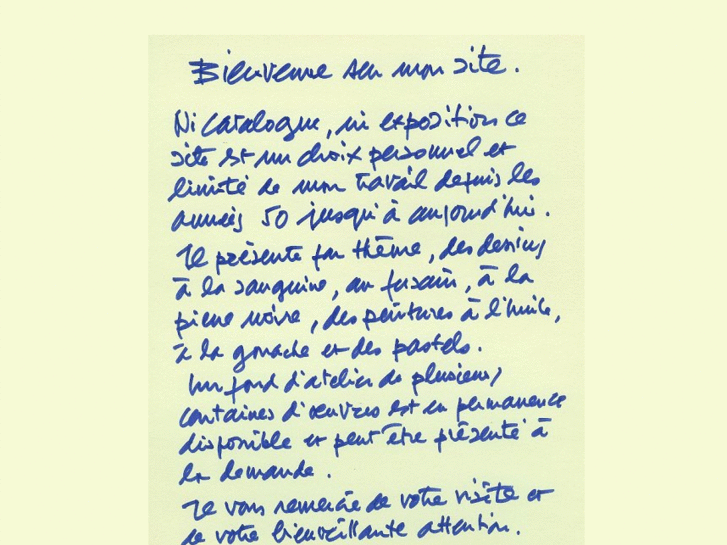 Bienvenue sur mon site.
Ni catalogue, ni exposition ce
site est un choix personnel et
limité de mon travail depuis les
années 50 jusqu'à aujourd'hui.
Je présente par thème, des dessins
à la sanguine, au fusain, à la
pierre noire, des peintures à l'huile,
à la gouache et des pastels.
Un fond d'atelier de plusieurs
centaines d'œuvres est en permanence
disponible et peut être présenté à
la demande.
Je vous remercie de votre visite et
de votre bienveillante attention.